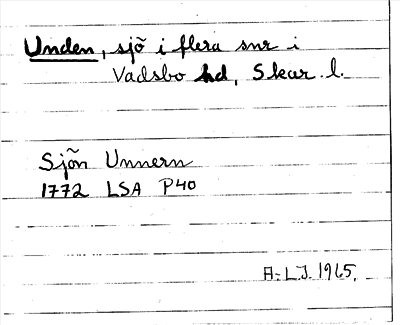 Unden, sjö i flera snr i
Vadsbo hd, Skar. l.
Sjön Unnern
1772 LSA P40
A-L.J. 1965.